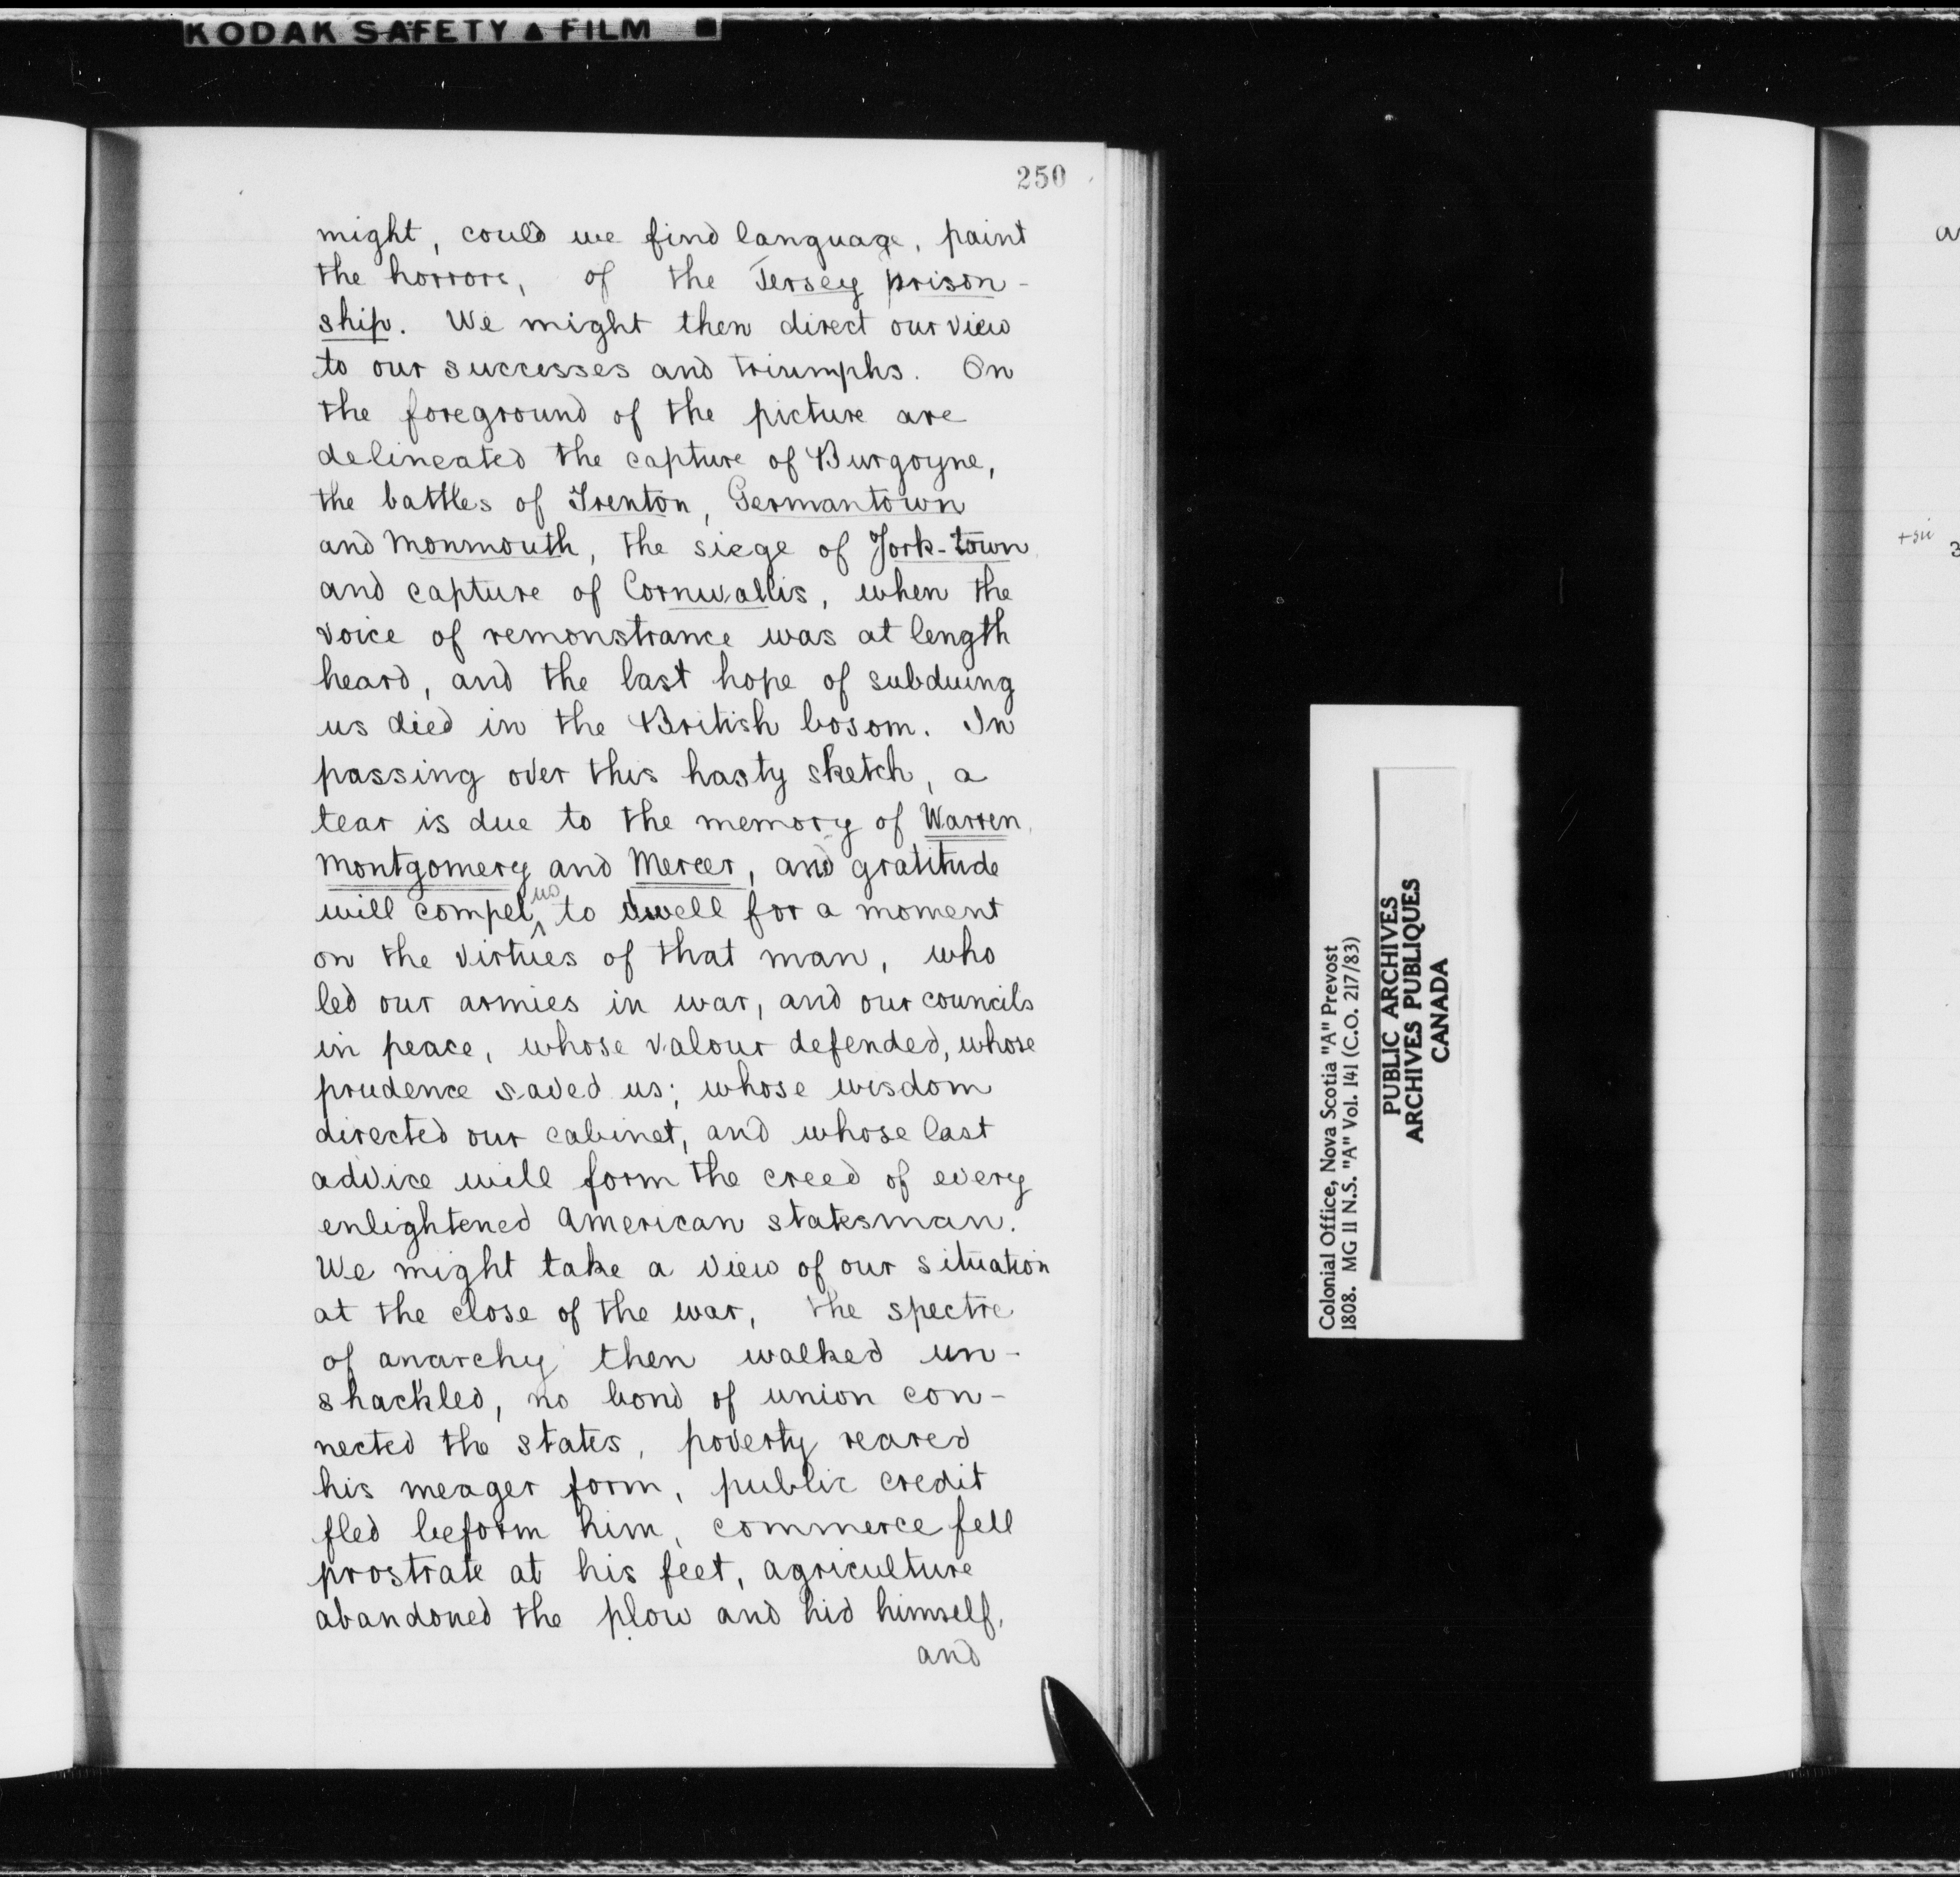 KODAK SAFETY ▲ FILM ■
250
might, could we find language, paint
the horrors, of the Jersey prison-
ship. We might then direct our view
to our successes and triumphs. On
the foreground of the picture are
delineated the capture of Burgoyne,
the battles of Trenton, Germantown
and Monmouth, the siege of York-town
and capture of Cornwallis, when the
voice of remonstrance was at length
heard, and the last hope of subduing
us died in the British bosom. In
passing over this hasty sketch, a
tear is due to the memory of Warren,
Montgomery and Mercer, and gratitude
will compel us to dwell for a moment
on the virtues of that man, who
led our armies in war, and our councils
in peace, whose valour defended, whose
prudence saved us; whose wisdom
directed our cabinet, and whose last
advice will form the creed of every
enlightened American statesman.
We might take a view of our situation
at the close of the war, the spectre
of anarchy then walked un-
shackled, no bond of union con-
nected the states, poverty reared
his meager form, public credit
fled beform him, commerce fell
prostrate at his feet, agriculture
abandoned the plow and hid himself,
and
Colonial Office, Nova Scotia "A" Prevost
1808. MG 11 N.S. "A" Vol. 141 (C.O. 217/83)
PUBLIC ARCHIVES
ARCHIVES PUBLIQUES
CANADA